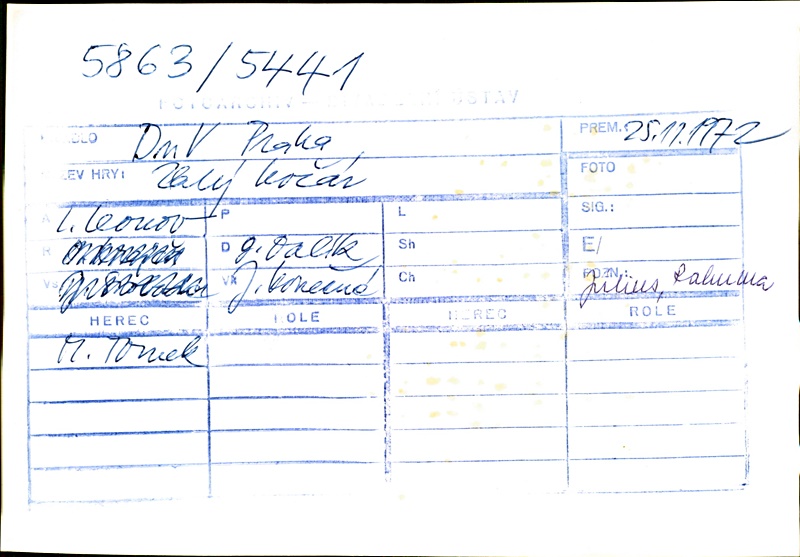 5863/5441
FOTOARCHIV – DIVADELNÍ ÚSTAV
DIVADLO DnV Praha PREM.: 25.11.1972
NÁZEV HRY: Zlatý kočár FOTO
A L. Leonov P L SIG.:
R D g. Sh E/
Vs Vk J. Konečná Ch POZN.: Julius, Kalnina
HEREC ROLE HEREC ROLE
M. Tomek